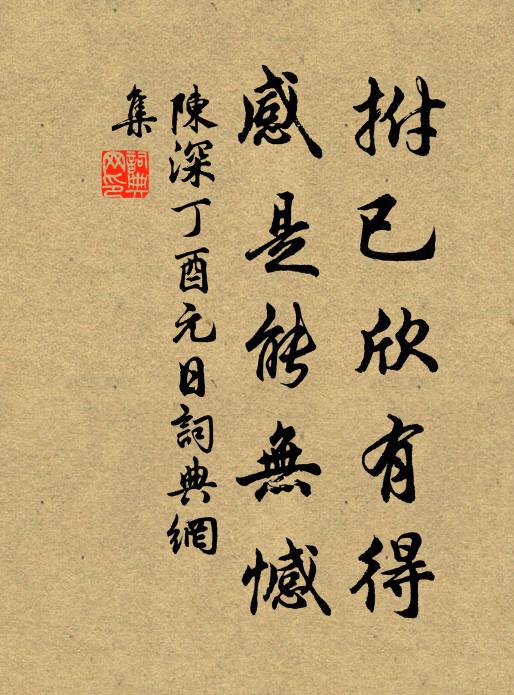 拊已欣有得
感是能無憾
陳深丁酉元日詞典網
集
詞典
网印